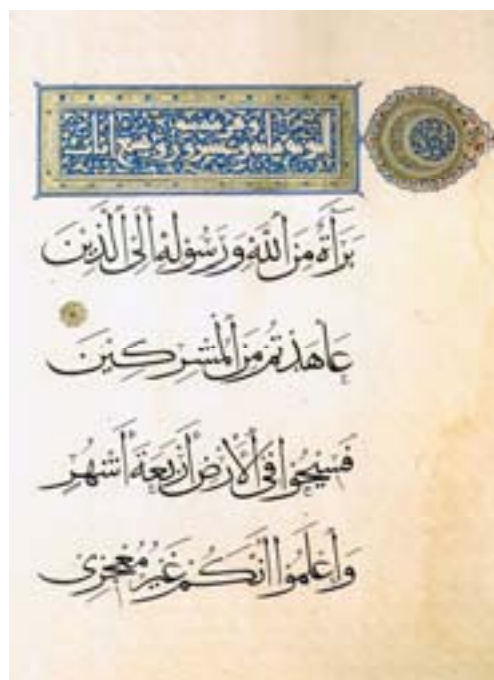 التوبة وعشرون آيات
بَرَآةٌ مِنَ اللَّهِ وَرَسُولِهِ إِلَى الَّذِينَ
عَاهَدْتُمْ مِنَ الْمُشْرِكِينَ
فَسِيحُوا فِي الْأَرْضِ أَرْبَعَةَ أَشْهُرٍ
وَاعْلَمُوا أَنَّكُمْ غَيْرُ مُعْجِزِي